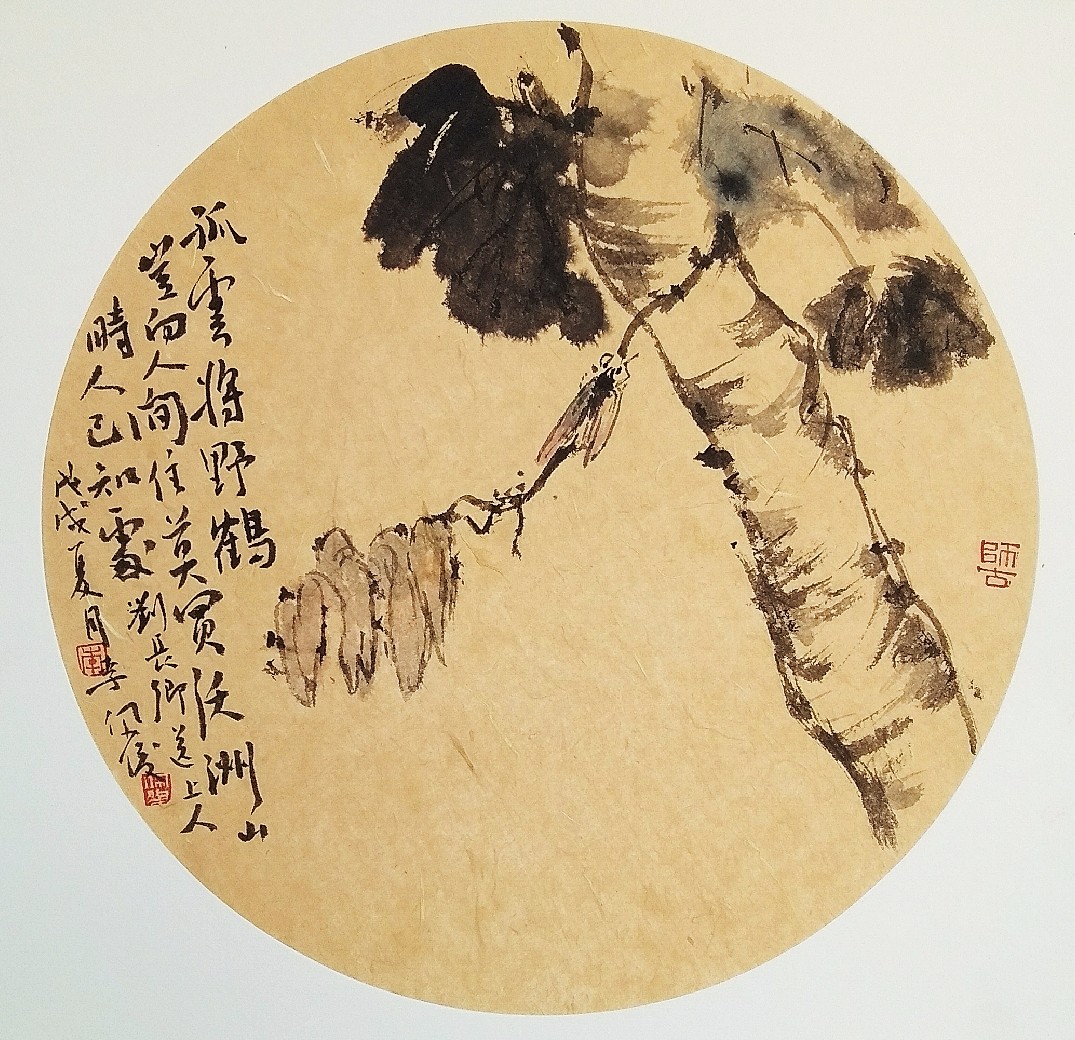 孤雲将野鶴
豈向人间住莫買沃洲山
時人已知處劉長卿送上人
戊戌夏月李
師古